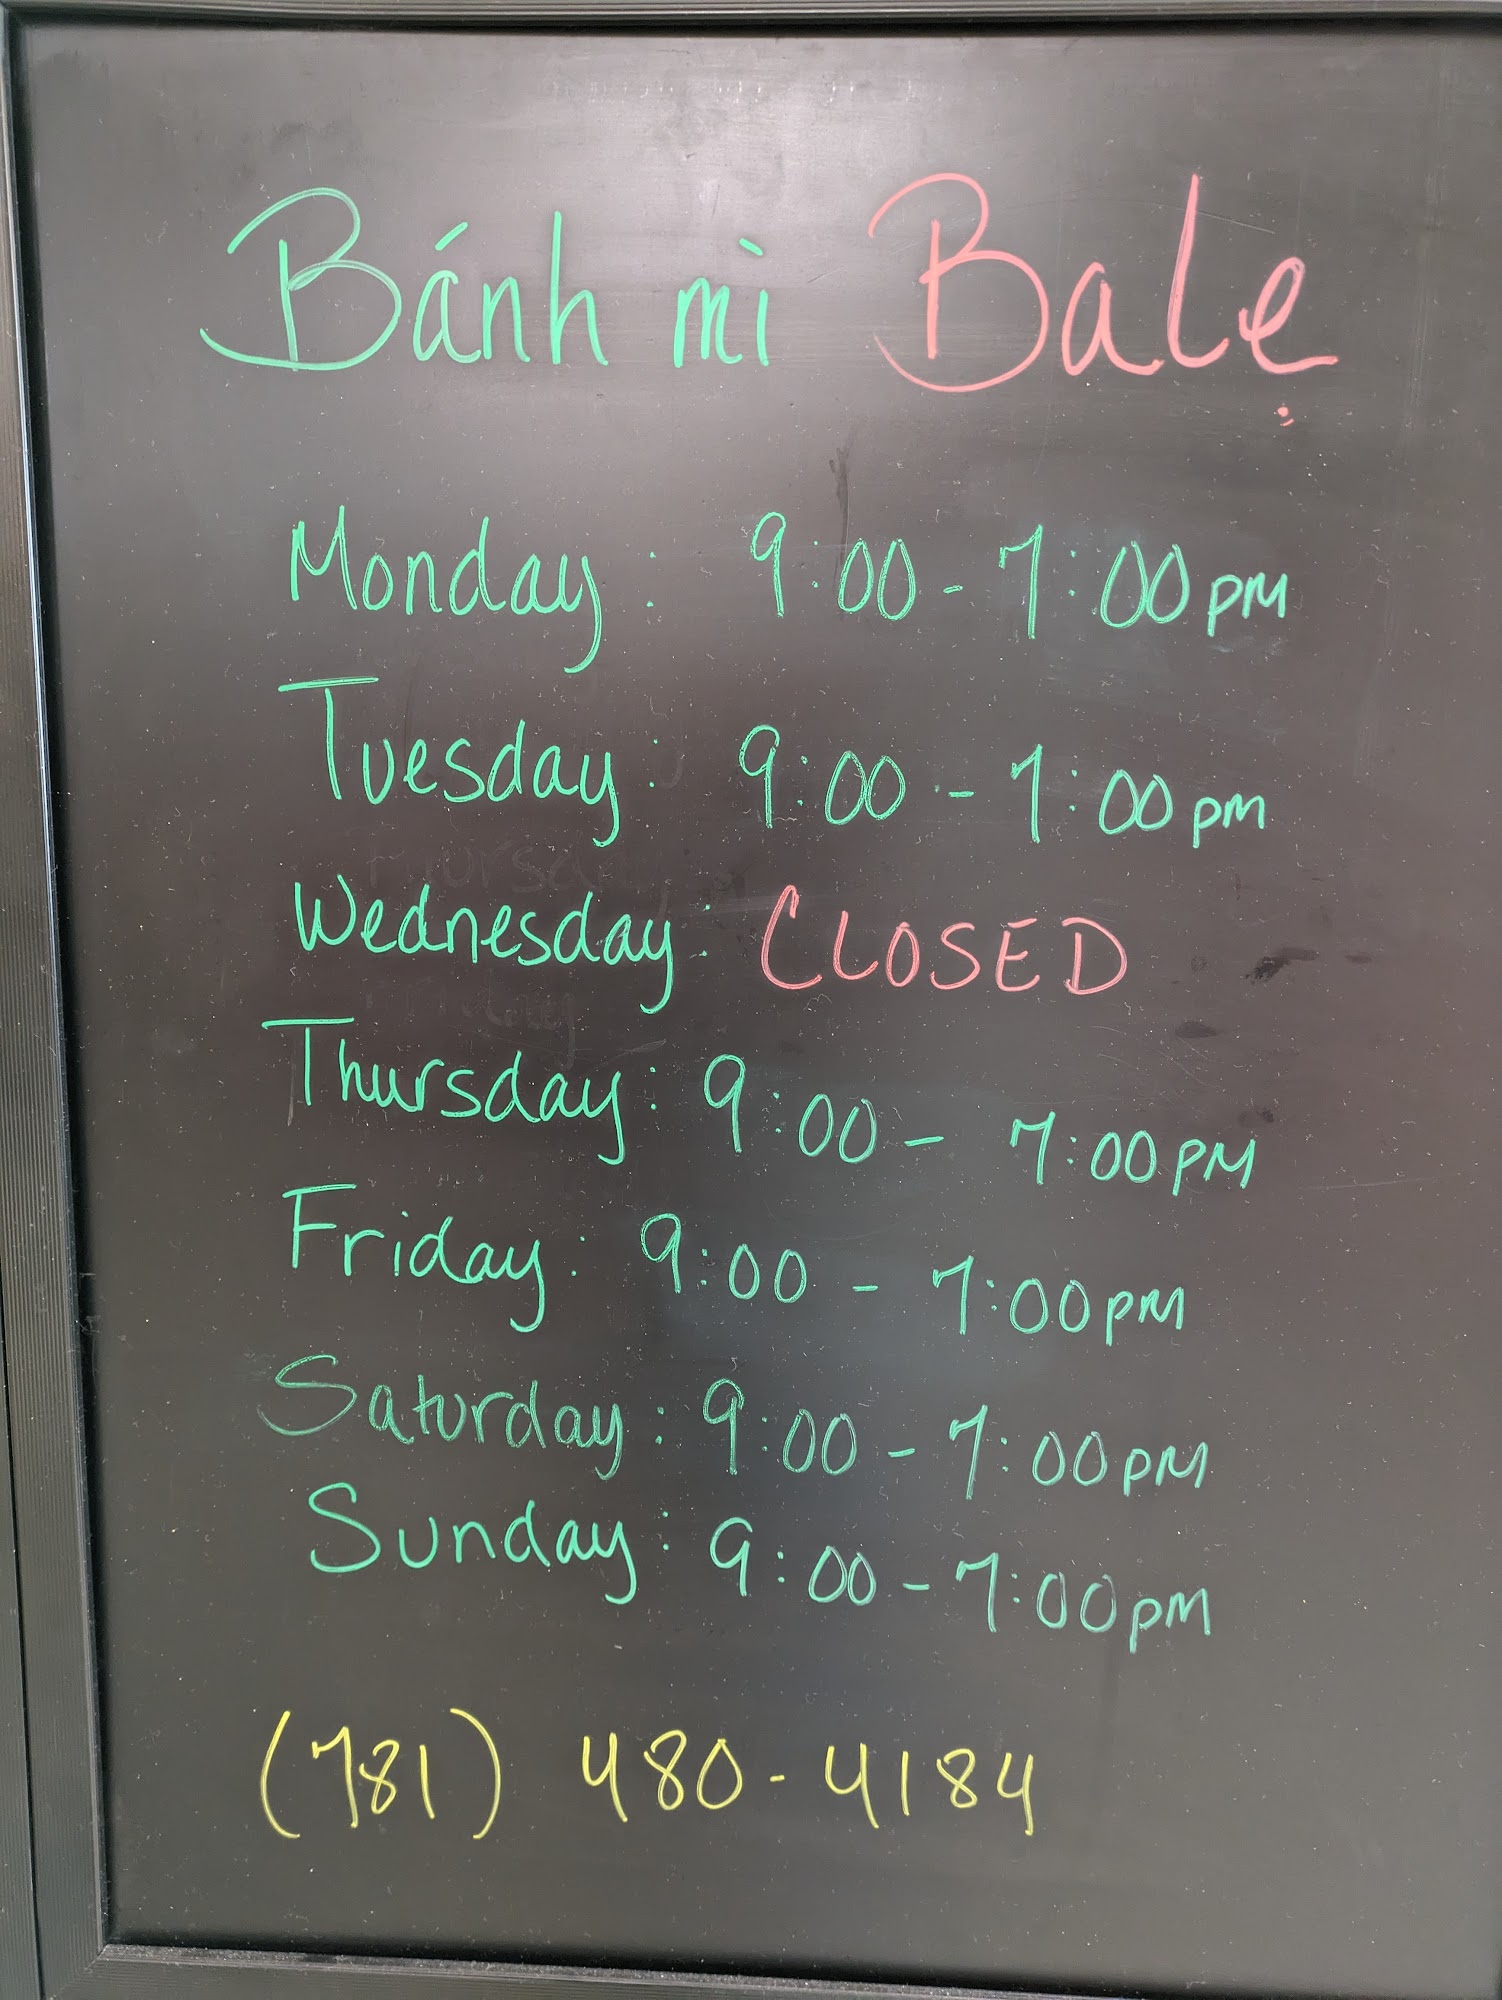 Bánh mì Balẹ
Monday: 9:00 - 7:00 PM
Tuesday: 9:00 - 7:00 pm
Wednesday: CLOSED
Thursday: 9:00 - 7:00 PM
Friday: 9:00 - 7:00 PM
Saturday: 9:00 - 7:00 PM
Sunday: 9:00 - 7:00 pm
(781) 480-4184